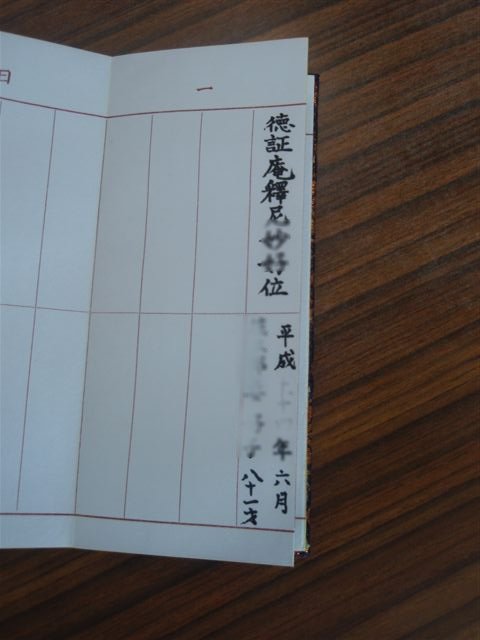 一
徳証庵釋尼妙好位
平成 年六月
八十一才
日